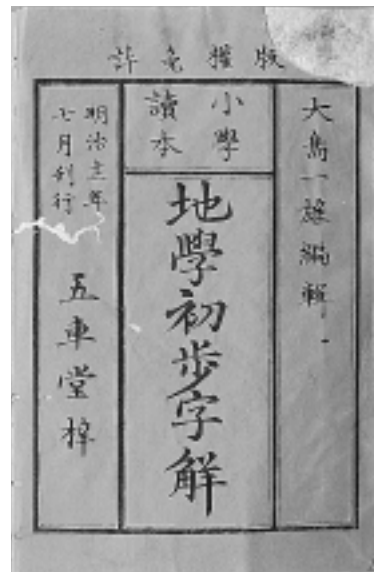 版權免許
大島一雄編輯
小學
讀本
地學初步字解
明治
七月刻行
五車堂梓